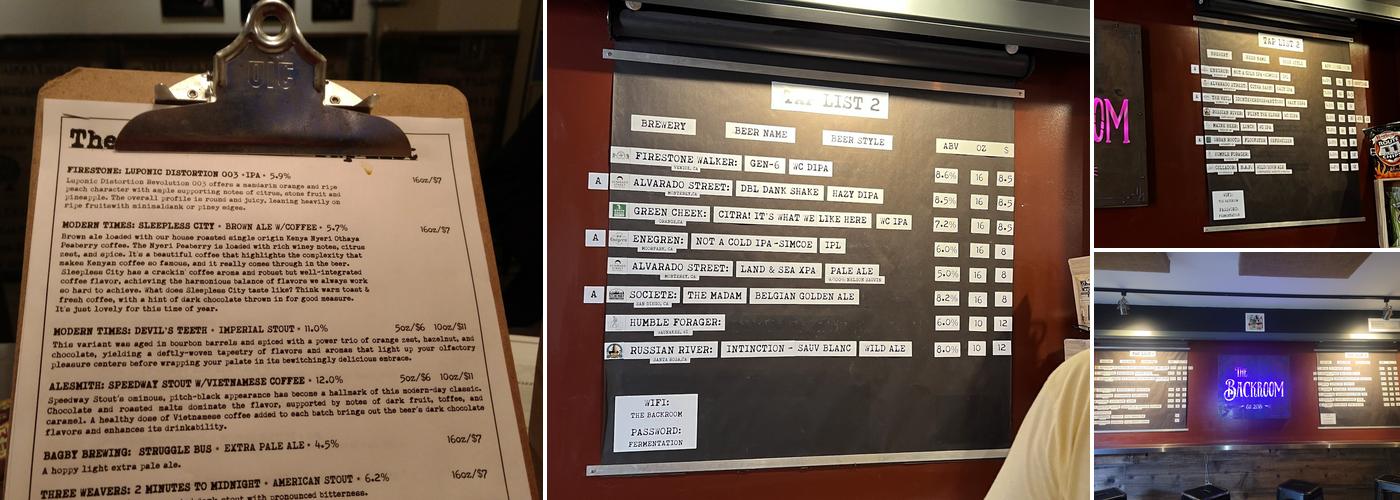 The
FIRESTONE: LUPONIC DISTORTION 003 • IPA • 5.9% 16oz/$7
Luponic Distortion Revolution 003 offers a mandarin orange and ripe
peach character with ample supporting notes of citrus, stone fruit and
pineapple. The overall profile is round and juicy, leaning heavily on
ripe fruitswith minimaldank or piney edges.
MODERN TIMES: SLEEPLESS CITY • BROWN ALE W/COFFEE • 5.7% 16oz/$7
Brown ale loaded with our house roasted single origin Kenya Nyeri Othaya
Peaberry coffee. The Nyeri Peaberry is loaded with rich winey notes, citrus
zest, and spice. It's a beautiful coffee that highlights the complexity that
makes Kenyan coffee so famous, and it really comes through in the beer.
Sleepless City has a crackin' coffee aroma and robust but well-integrated
coffee flavor, achieving the harmonious balance of flavors we always work
so hard to achieve. What does Sleepless City taste like? Think warm toast &
fresh coffee, with a hint of dark chocolate thrown in for good measure.
It's just lovely for this time of year.
MODERN TIMES: DEVIL'S TEETH • IMPERIAL STOUT • 11.0% 5oz/$6 10oz/$11
This variant was aged in bourbon barrels and spiced with a power trio of orange zest, hazelnut, and
chocolate, yielding a deftly-woven tapestry of flavors and aromas that light up your olfactory
pleasure centers before wrapping your palate in its bewitchingly delicious embrace.
ALESMITH: SPEEDWAY STOUT W/VIETNAMESE COFFEE • 12.0% 5oz/$6 10oz/$11
Speedway Stout's ominous, pitch-black appearance has become a hallmark of this modern-day classic.
Chocolate and roasted malts dominate the flavor, supported by notes of dark fruit, toffee, and
caramel. A healthy dose of Vietnamese coffee added to each batch brings out the beer's dark chocolate
flavors and enhances its drinkability.
BAGBY BREWING: STRUGGLE BUS • EXTRA PALE ALE • 4.5% 16oz/$7
A hoppy light extra pale ale.
THREE WEAVERS: 2 MINUTES TO MIDNIGHT • AMERICAN STOUT • 6.2% 16oz/$7
stout with pronounced bitterness.
TAP LIST 2
BREWERY BEER NAME BEER STYLE ABV OZ $
FIRESTONE WALKER: GEN-6 WC DIPA 8.6% 16 8.5
VENICE, CA
A ALVARADO STREET: DBL DANK SHAKE HAZY DIPA 8.5% 16 8.5
MONTEREY, CA
GREEN CHEEK: CITRA! IT'S WHAT WE LIKE HERE WC IPA 7.2% 16 8.5
ORANGE, CA
A ENEGREN: NOT A COLD IPA-SIMCOE IPL 6.0% 16 8
MOORPARK, CA
ALVARADO STREET: LAND & SEA XPA PALE ALE 5.0% 16 8
MONTEREY, CA
A SOCIETE: THE MADAM BELGIAN GOLDEN ALE 8.2% 16 8
SAN DIEGO, CA
HUMBLE FORAGER: 6.0% 10 12
WAUNAKEE, WI
RUSSIAN RIVER: INTINCTION - SAUV BLANC WILD ALE 8.0% 10 12
SANTA ROSA, CA
WIFI:
THE BACKROOM
PASSWORD:
FERMENTATION
OM
TAP LIST 2
BREWERY BEER NAME BEER STYLE
A ENEGREN: NOT A COLD IPA-SIMCOE IPL
ALVARADO STREET:
RUSSIAN RIVER: PLINY THE ELDER WC IPA
MAINE BEER: LUNCH WC IPA
HUMBLE FORAGER:
WIFI:
THE BACKROOM
PASSWORD:
FERMENTATION
THE
BACKROOM